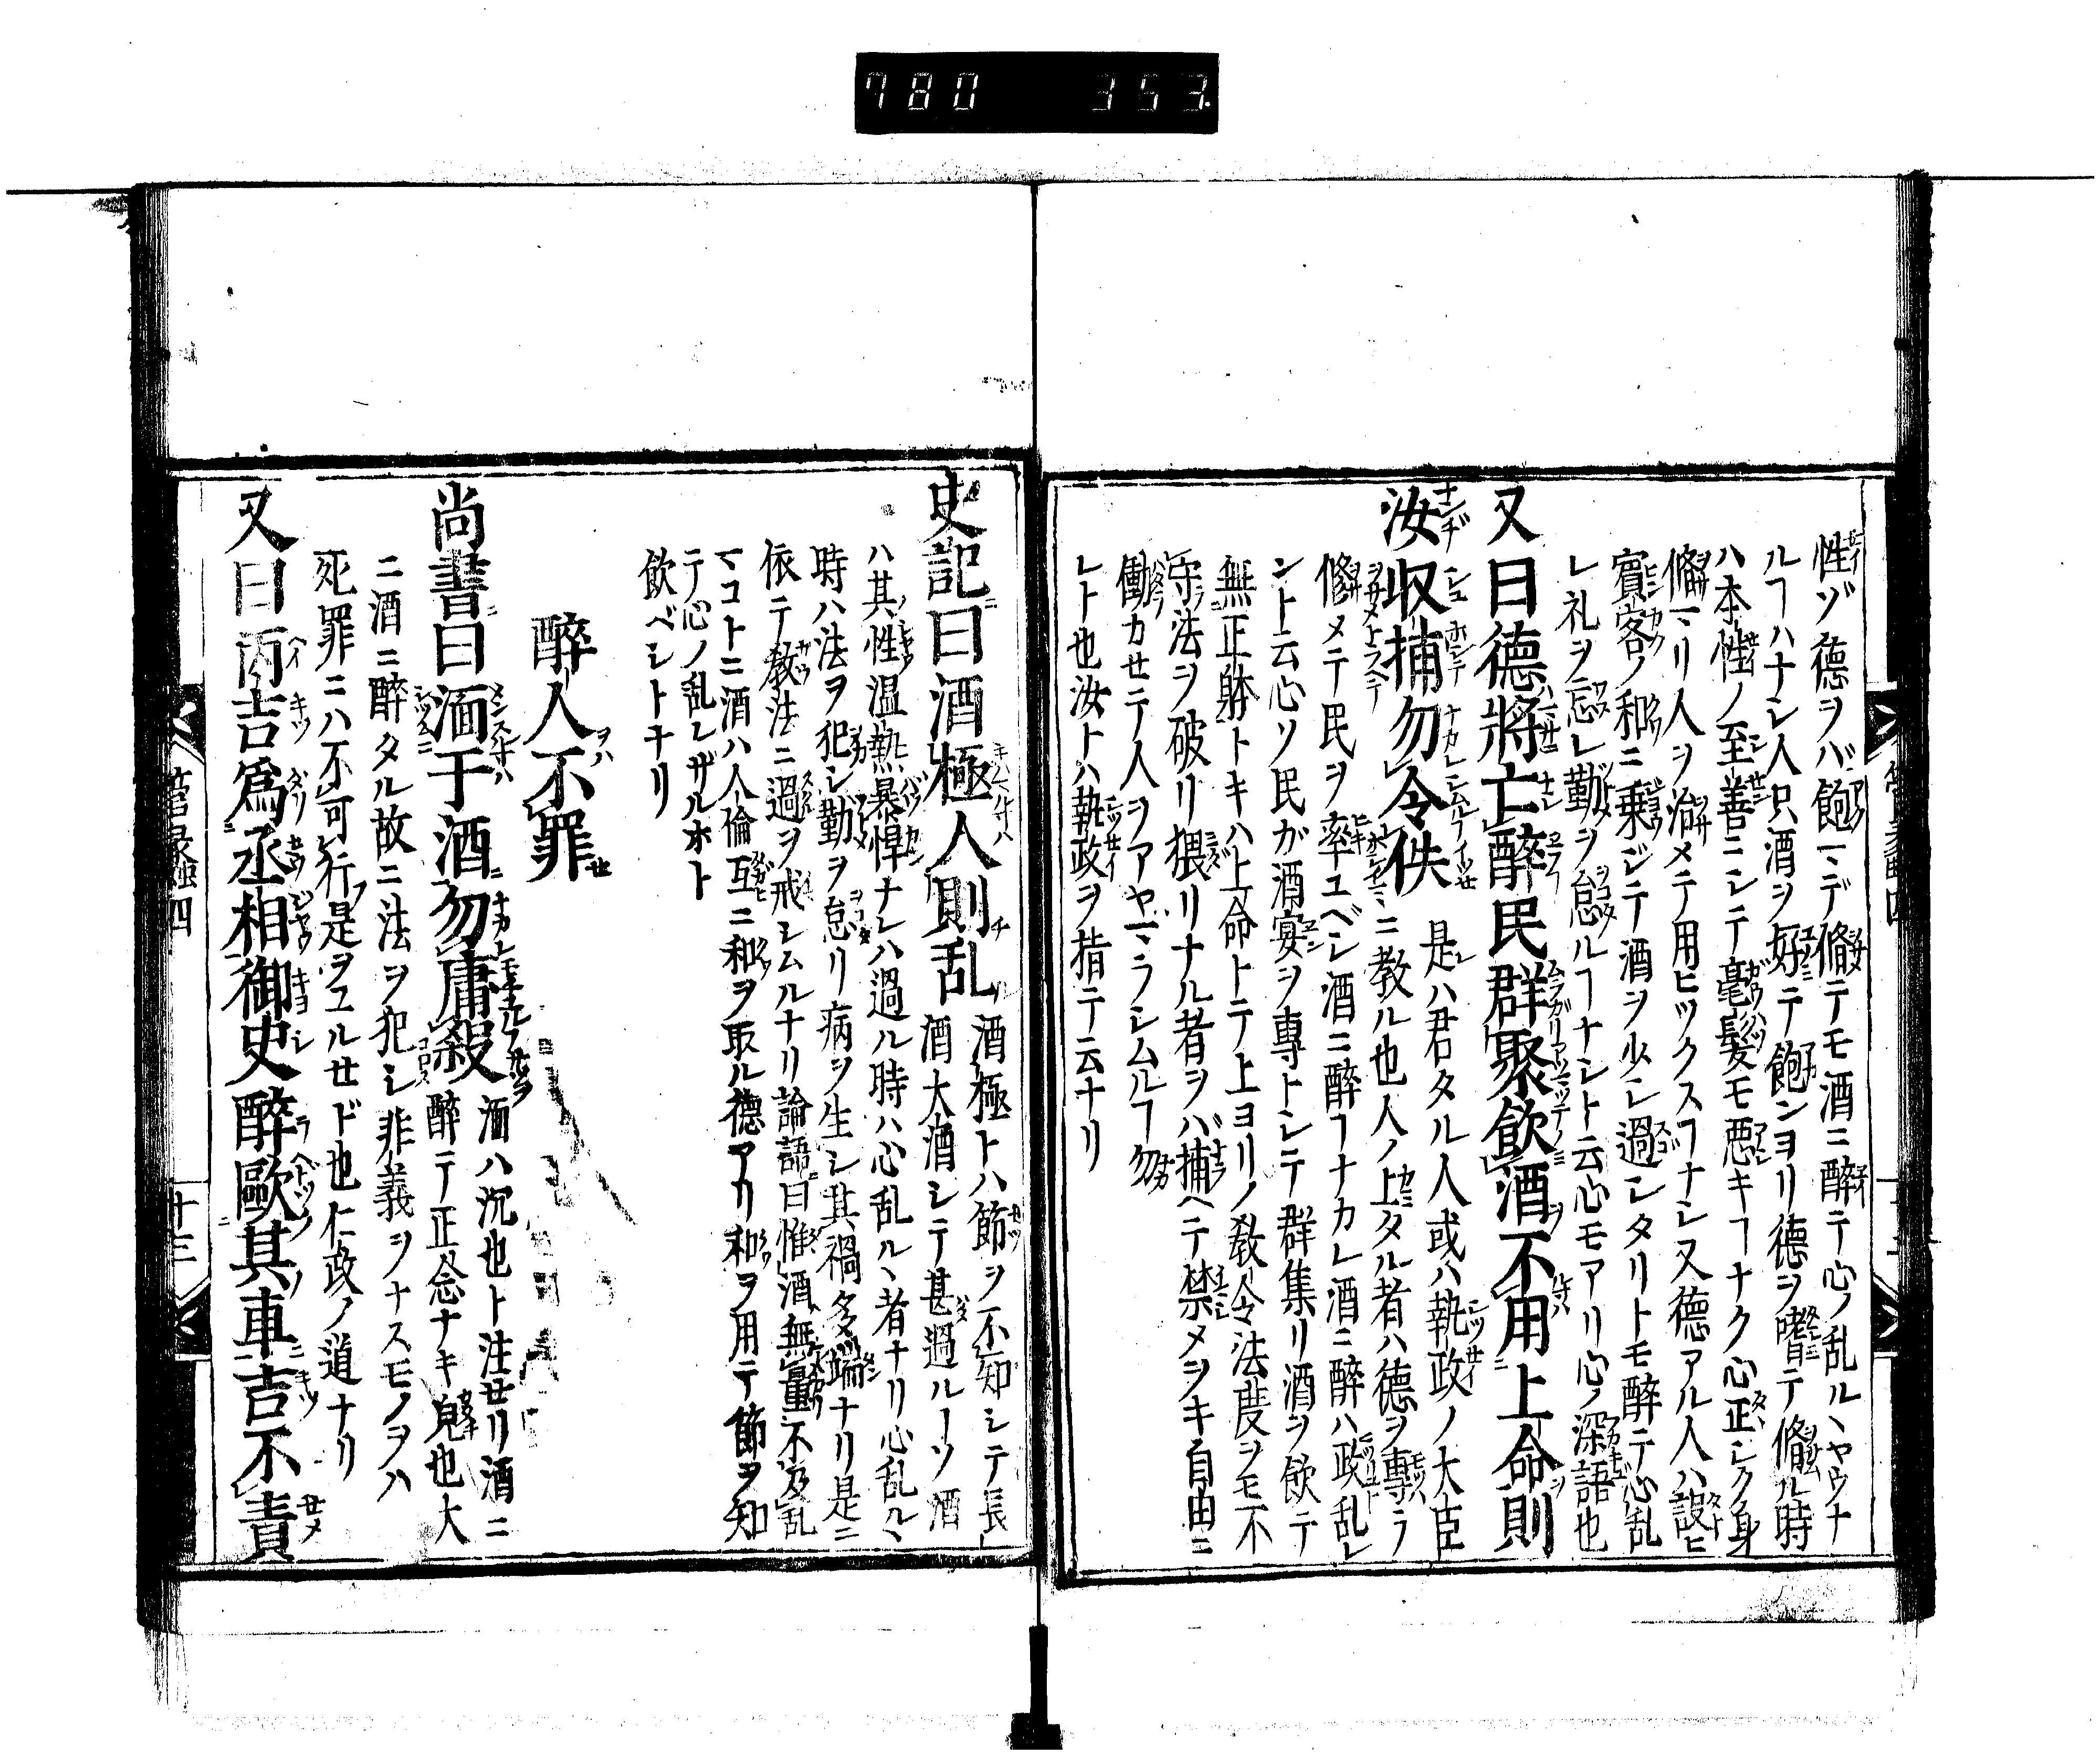 780 353.
性ゾ德ヲバ飽マデ脩テモ酒ニ醉テ心ノ乱ルヽヤウナ
ルヿハナシ人只酒ヲ好テ飽ンヨリ德ヲ嗜テ脩ル時
ハ本性ノ至善ニシテ毫髮モ惡キヿナク心正シク身
脩マリ人ヲ治メテ用ヒツクスヿナシ又德アル人ハ設ヒ
賓客ノ和ニ乗ジテ酒ヲ少シ過シタリトモ醉テ心乱
レ礼ヲ忘レ勤ヲ怠ルヿナシト云心モアリ心ノ深語也
又曰德將亡醉民群聚飲酒不用上命則
汝収捕勿令佚 是ハ君タル人或ハ執政ノ大臣
ニ教ル也人ノ上タル者ハ德ヲ專ラ
修メテ民ヲ率ユベシ酒ニ醉ヿナカレ酒ニ醉ハ政乱レ
ント云心ソ民ガ酒宴ヲ專トシテ群集リ酒ヲ飲テ
無正躰トキハ上命トテ上ヨリノ教令法度ヲモ不
守法ヲ破リ猥リナル者ヲハ捕ヘテ禁メヲキ自由ニ
働カセテ人ヲアヤマラシムルヿ勿
レト也汝トハ執政ヲ指テ云ナリ
史記曰酒極人則乱 酒極トハ節ヲ不知シテ長
酒大酒シテ甚過ルーソ酒
ハ其性温熱暴悍ナレハ過ル時ハ心乱ルヽ者ナリ心乱ルヽ
時ハ法ヲ犯シ勤ヲ怠リ病ヲ生シ其禍多端ナリ是ニ
依テ教法ニ過ヲ戒シムルナリ論語曰惟酒無量不及乱
マコトニ酒ハ人倫互ニ和ヲ取ル德アリ和ヲ用テ節ヲ知
テ心ノ乱レザルホト
飲ベシトナリ
醉人不罪
尚書曰湎于酒勿庸殺 湎ハ沉也ト注セリ酒ニ
醉テ正念ナキ皃也大
ニ酒ニ醉タル故ニ法ヲ犯シ非義ヲナスモノヲハ
死罪ニハ不可行是ヲユルセド也仁政ノ道ナリ
又曰丙吉爲丞相御史醉歐其車吉不責
十三